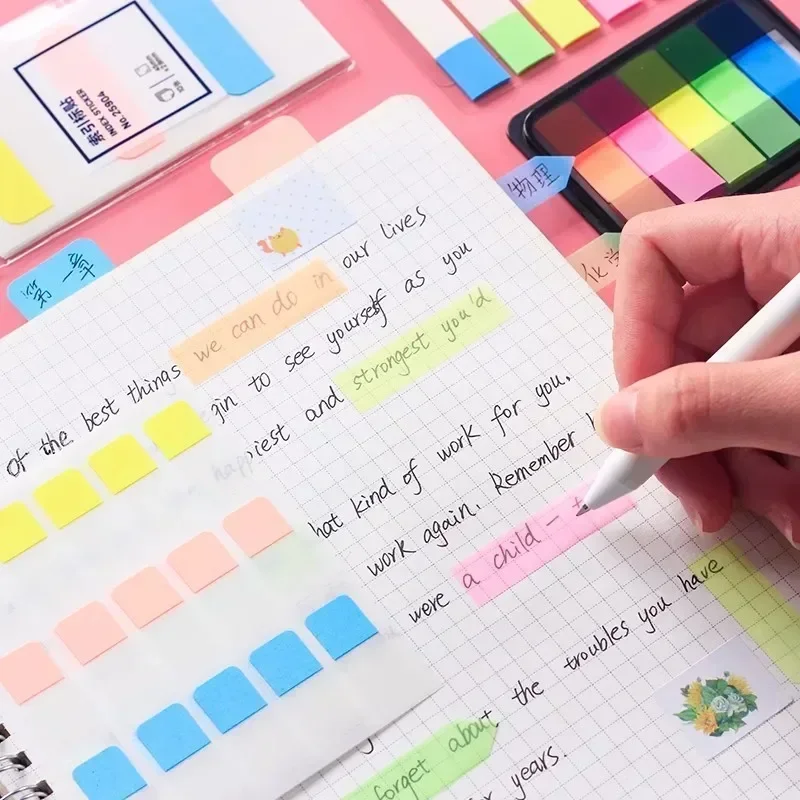 索引标贴
No.25904
INDEX STICKER
第一章
物理
化学
our lives
of the best things we can do in
gin to see yourself as you
happiest and strongest you'd
hat kind of work for you.
work again. Remember
were a child - t
the troubles you have
forget about
years.